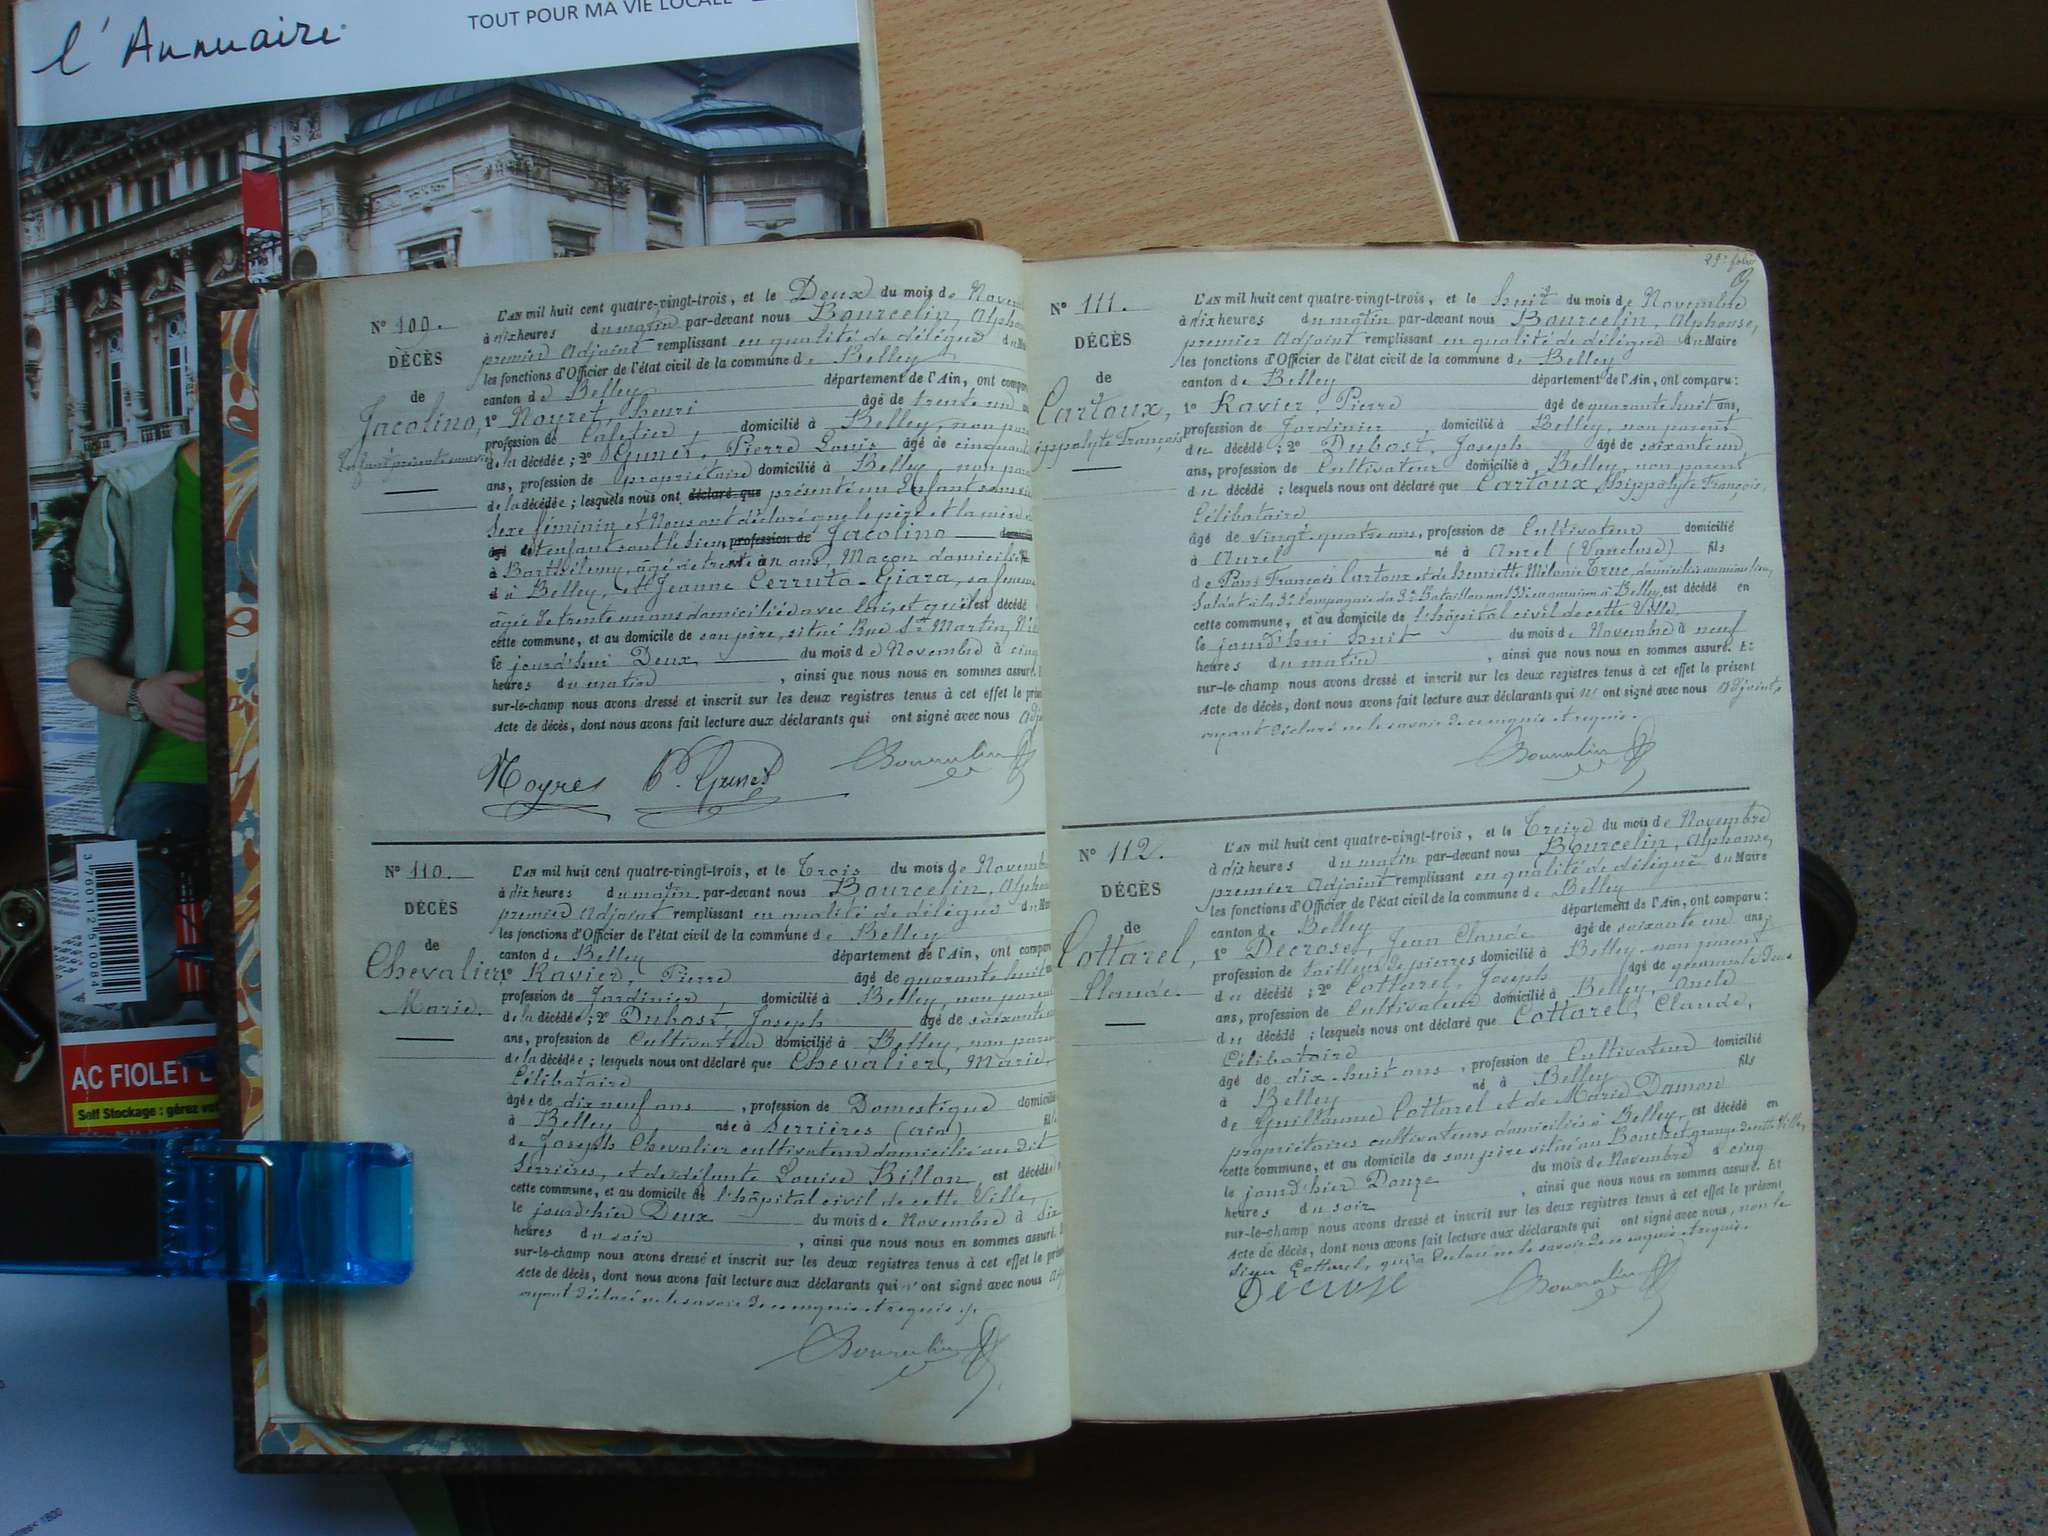 l'Annuaire
TOUT POUR MA VIE LOCALE
3 760112 610084
AC FIOLET
Self Stockage : gérez
N° 109.
DÉCÈS
de
Jacolino,
L'AN mil huit cent quatre-vingt-trois, et le Deux du mois de
à dix heures du matin par-devant nous Bourcelin,
premier Adjoint remplissant en qualité de délégué du
les fonctions d'Officier de l'état civil de la commune de Belley
canton de Belley département de l'Ain, ont
1° Noyret, henri âgé de trente un
profession de Cafetier, domicilié à Belley, non
de la décédée ; 2° Gunet, Pierre Louis âgé de
ans, profession de propriétaire domicilié à Belley, non
de la décédée ; lesquels nous ont déclaré que présenté un Enfant sans
Sexe féminin et Nous ont déclaré que le père et la mère
âgé de l'enfant sont le sieur profession de Jacolino
à Barthélemy, âgé de trente un ans, Maçon domicilié
à Belley, et Jeanne Cerruto-Giara, sa femme
âgée de trente un ans domiciliée avec lui, et qu'il est décédé
cette commune, et au domicile de son père, situé Rue St Martin,
le jourd'hui Deux du mois de Novembre à
heures du matin, ainsi que nous nous en sommes assuré.
sur-le-champ nous avons dressé et inscrit sur les deux registres tenus à cet effet le
Acte de décès, dont nous avons fait lecture aux déclarants qui ont signé avec nous
Noyret P. Gunet Bourcelin
N° 110.
DÉCÈS
de
Chevalier,
Marie.
L'AN mil huit cent quatre-vingt-trois, et le Trois du mois de
à dix heures du matin par-devant nous Bourcelin,
premier Adjoint remplissant en qualité de délégué
les fonctions d'Officier de l'état civil de la commune de Belley
canton de Belley département de l'Ain, ont
1° Ravier, Pierre âgé de quarante huit
profession de Jardinier, domicilié à Belley, non parent
de la décédée ; 2° Dubost, Joseph âgé de
ans, profession de Cultivateur domicilié à Belley, non
de la décédée ; lesquels nous ont déclaré que Chevalier, Marie,
Célibataire
âgée de dix neuf ans, profession de Domestique
à Belley née à Serrières (ain)
de Joseph Chevalier cultivateur domicilié au dit
Serrières, et de défunte Louise Billon, est décédée
cette commune, et au domicile de l'hôpital civil de cette Ville,
le jourd'hier Deux du mois de Novembre à six
heures du soir, ainsi que nous nous en sommes assuré.
sur-le-champ nous avons dressé et inscrit sur les deux registres tenus à cet effet le
Acte de décès, dont nous avons fait lecture aux déclarants qui n'ont signé avec nous
ayant déclaré ne le savoir de ce enquis et requis ./.
Bourcelin
29e folio
N° 111.
DÉCÈS
de
Cartoux,
L'AN mil huit cent quatre-vingt-trois, et le huit du mois de Novembre
à dix heures du matin par-devant nous Bourcelin, Alphonse,
premier Adjoint remplissant en qualité de délégué du Maire
les fonctions d'Officier de l'état civil de la commune de Belley
canton de Belley département de l'Ain, ont comparu :
1° Ravier, Pierre âgé de quarante huit ans,
profession de Jardinier, domicilié à Belley, non parent
du décédé ; 2° Dubost, Joseph âgé de soixante un,
ans, profession de Cultivateur domicilié à Belley, non parent
du décédé ; lesquels nous ont déclaré que Cartoux, hippolyte François,
Célibataire
âgé de vingt-quatre ans, profession de Cultivateur domicilié
à Aurel né à Aurel (Vaucluse) fils
de Pons François Cartoux et de henriette Mélanie Truc domiciliés au même lieu,
Soldat à la 3e Compagnie du 3e Bataillon en garnison à Belley, est décédé en
cette commune, et au domicile de l'hôpital civil de cette Ville
le jourd'hui huit du mois de Novembre à neuf
heures du matin, ainsi que nous nous en sommes assuré. Et
sur-le-champ nous avons dressé et inscrit sur les deux registres tenus à cet effet le présent
Acte de décès, dont nous avons fait lecture aux déclarants qui n'ont signé avec nous Adjoint,
ayant déclaré ne le savoir de ce enquis et requis.
Bourcelin
N° 112.
DÉCÈS
de
Cottarel,
Claude.
L'AN mil huit cent quatre-vingt-trois, et le Treize du mois de Novembre
à dix heures du matin par-devant nous Bourcelin, Alphonse,
premier Adjoint remplissant en qualité de délégué du Maire
les fonctions d'Officier de l'état civil de la commune de Belley
canton de Belley département de l'Ain, ont comparu :
1° Decrose, Jean Claude âgé de soixante un ans,
profession de tailleur de pierres domicilié à Belley, non parent
du décédé ; 2° Cottarel, Joseph âgé de quarante deux
ans, profession de Cultivateur domicilié à Belley, Oncle
du décédé ; lesquels nous ont déclaré que Cottarel, Claude,
Célibataire
âgé de dix-huit ans, profession de Cultivateur domicilié
à Belley né à Belley fils
de Guillaume Cottarel et de Marie Damon
propriétaires cultivateurs domiciliés à Belley, est décédé en
cette commune, et au domicile de son père situé au grange de cette Ville,
le jourd'hier Douze du mois de Novembre à cinq
heures du soir, ainsi que nous nous en sommes assuré. Et
sur-le-champ nous avons dressé et inscrit sur les deux registres tenus à cet effet le présent
Acte de décès, dont nous avons fait lecture aux déclarants qui ont signé avec nous, non le
sieur Cottarel, qui a déclaré ne le savoir de ce enquis et requis.
Decrose Bourcelin